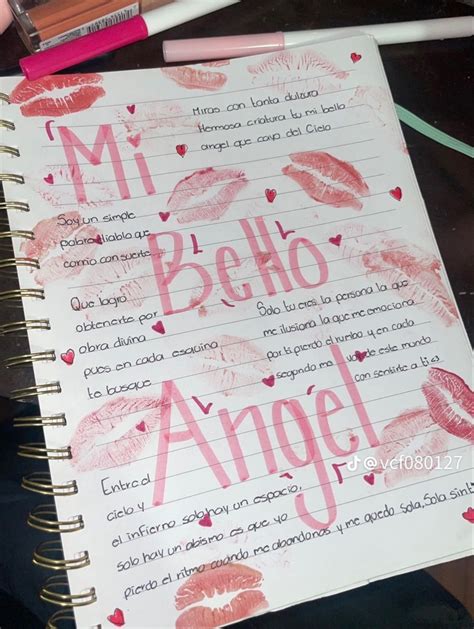 Miras con tanta dulzura
Hermosa criatura tu mi bello
angel que cayo del Cielo
Mi
Soy un simple
pobre diablo que
corrio con suerte
Bello
Que logro
obtenerte por
obra divina
pues en cada esquina
te busque
Solo tu eres la persona la que
me ilusiona la que me emociona
por ti pierdo el rumbo y en cada
segundo me de este mundo
con sentirte a ti <3
Angel
Entre el
cielo y
el infierno solo hay un espacio,
solo hay un abismo es que yo
pierdo el ritmo cuando me abandonas y me quedo sola, Sola sin
@vcf080127